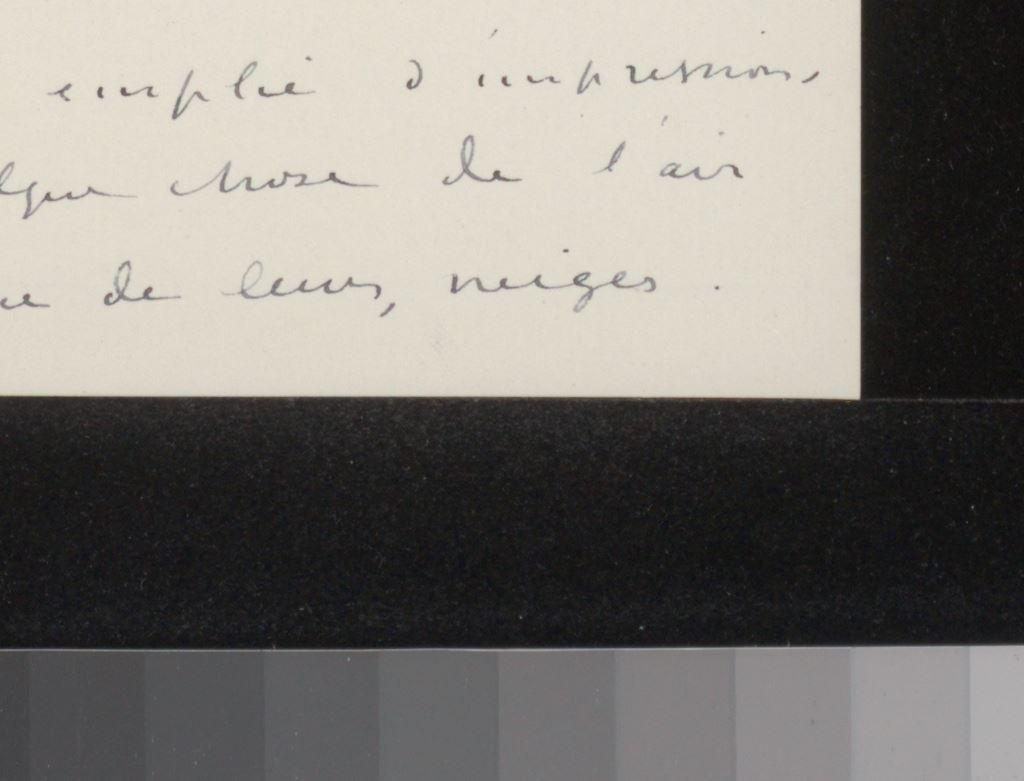 emplie d'impressions
lque chose de l'air
ue de leurs neiges.